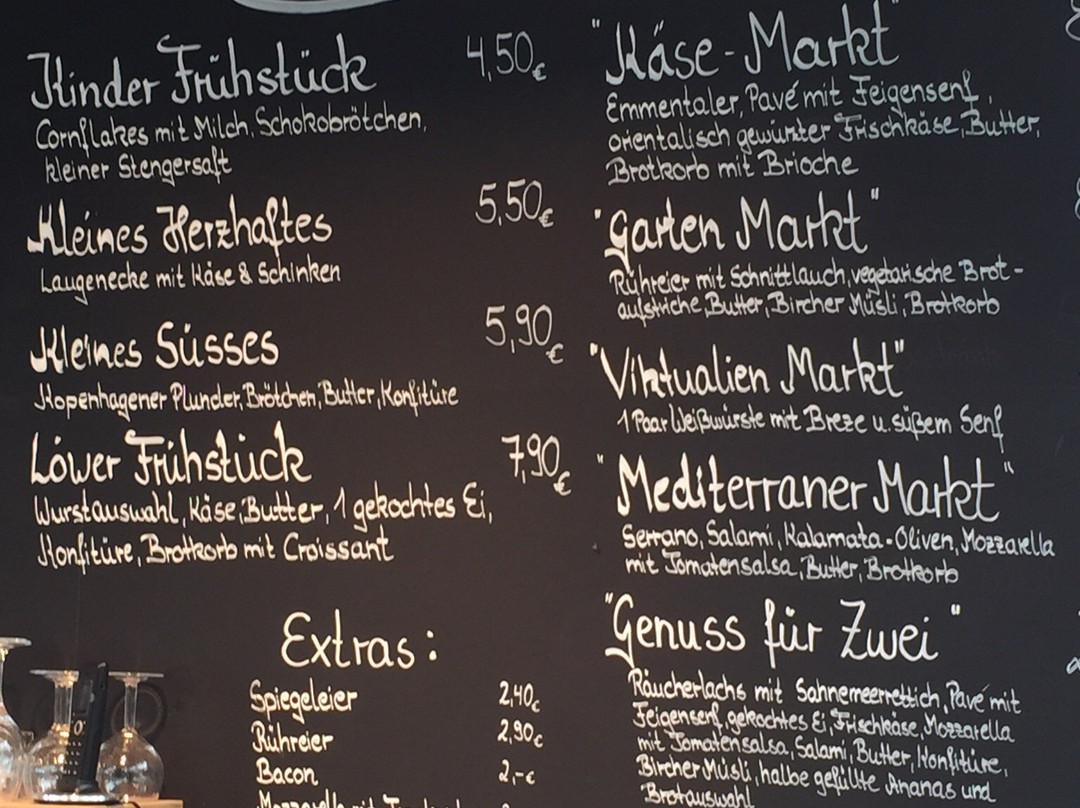 Kinder Frühstück 4,50€
Cornflakes mit Milch, Schokobrötchen,
kleiner Stengersaft
Kleines Herzhaftes 5,50€
Laugenecke mit Käse & Schinken
Kleines Süsses 5,90€
Kopenhagener Plunder, Brötchen, Butter, Konfitüre
Löwer Frühstück 7,90€
Wurstauswahl, Käse, Butter, 1 gekochtes Ei,
Konfitüre, Brotkorb mit Croissant
Extras:
Spiegeleier 2,40€
Rühreier 2,90€
Bacon 2,-€
"Käse-Markt"
Emmentaler, Pavé mit Feigensenf,
orientalisch gewürzter Frischkäse, Butter,
Brotkorb mit Brioche
"Garten Markt"
Rühreier mit Schnittlauch, vegetarische Brot-
aufstriche, Butter, Bircher Müsli, Brotkorb
"Virtualien Markt"
1 Paar Weißwürste mit Breze u. süßem Senf
"Mediterraner Markt"
Serrano, Salami, Kalamata-Oliven, Mozzarella
mit Tomatensalsa, Butter, Brotkorb
"Genuss für Zwei"
Räucherlachs mit Sahnemeerrettich, Pavé mit
Feigensenf, gekochtes Ei, Frischkäse, Mozzarella
mit Tomatensalsa, Salami, Butter, Konfitüre,
Bircher Müsli, halbe gefüllte Ananas und
Brotauswahl